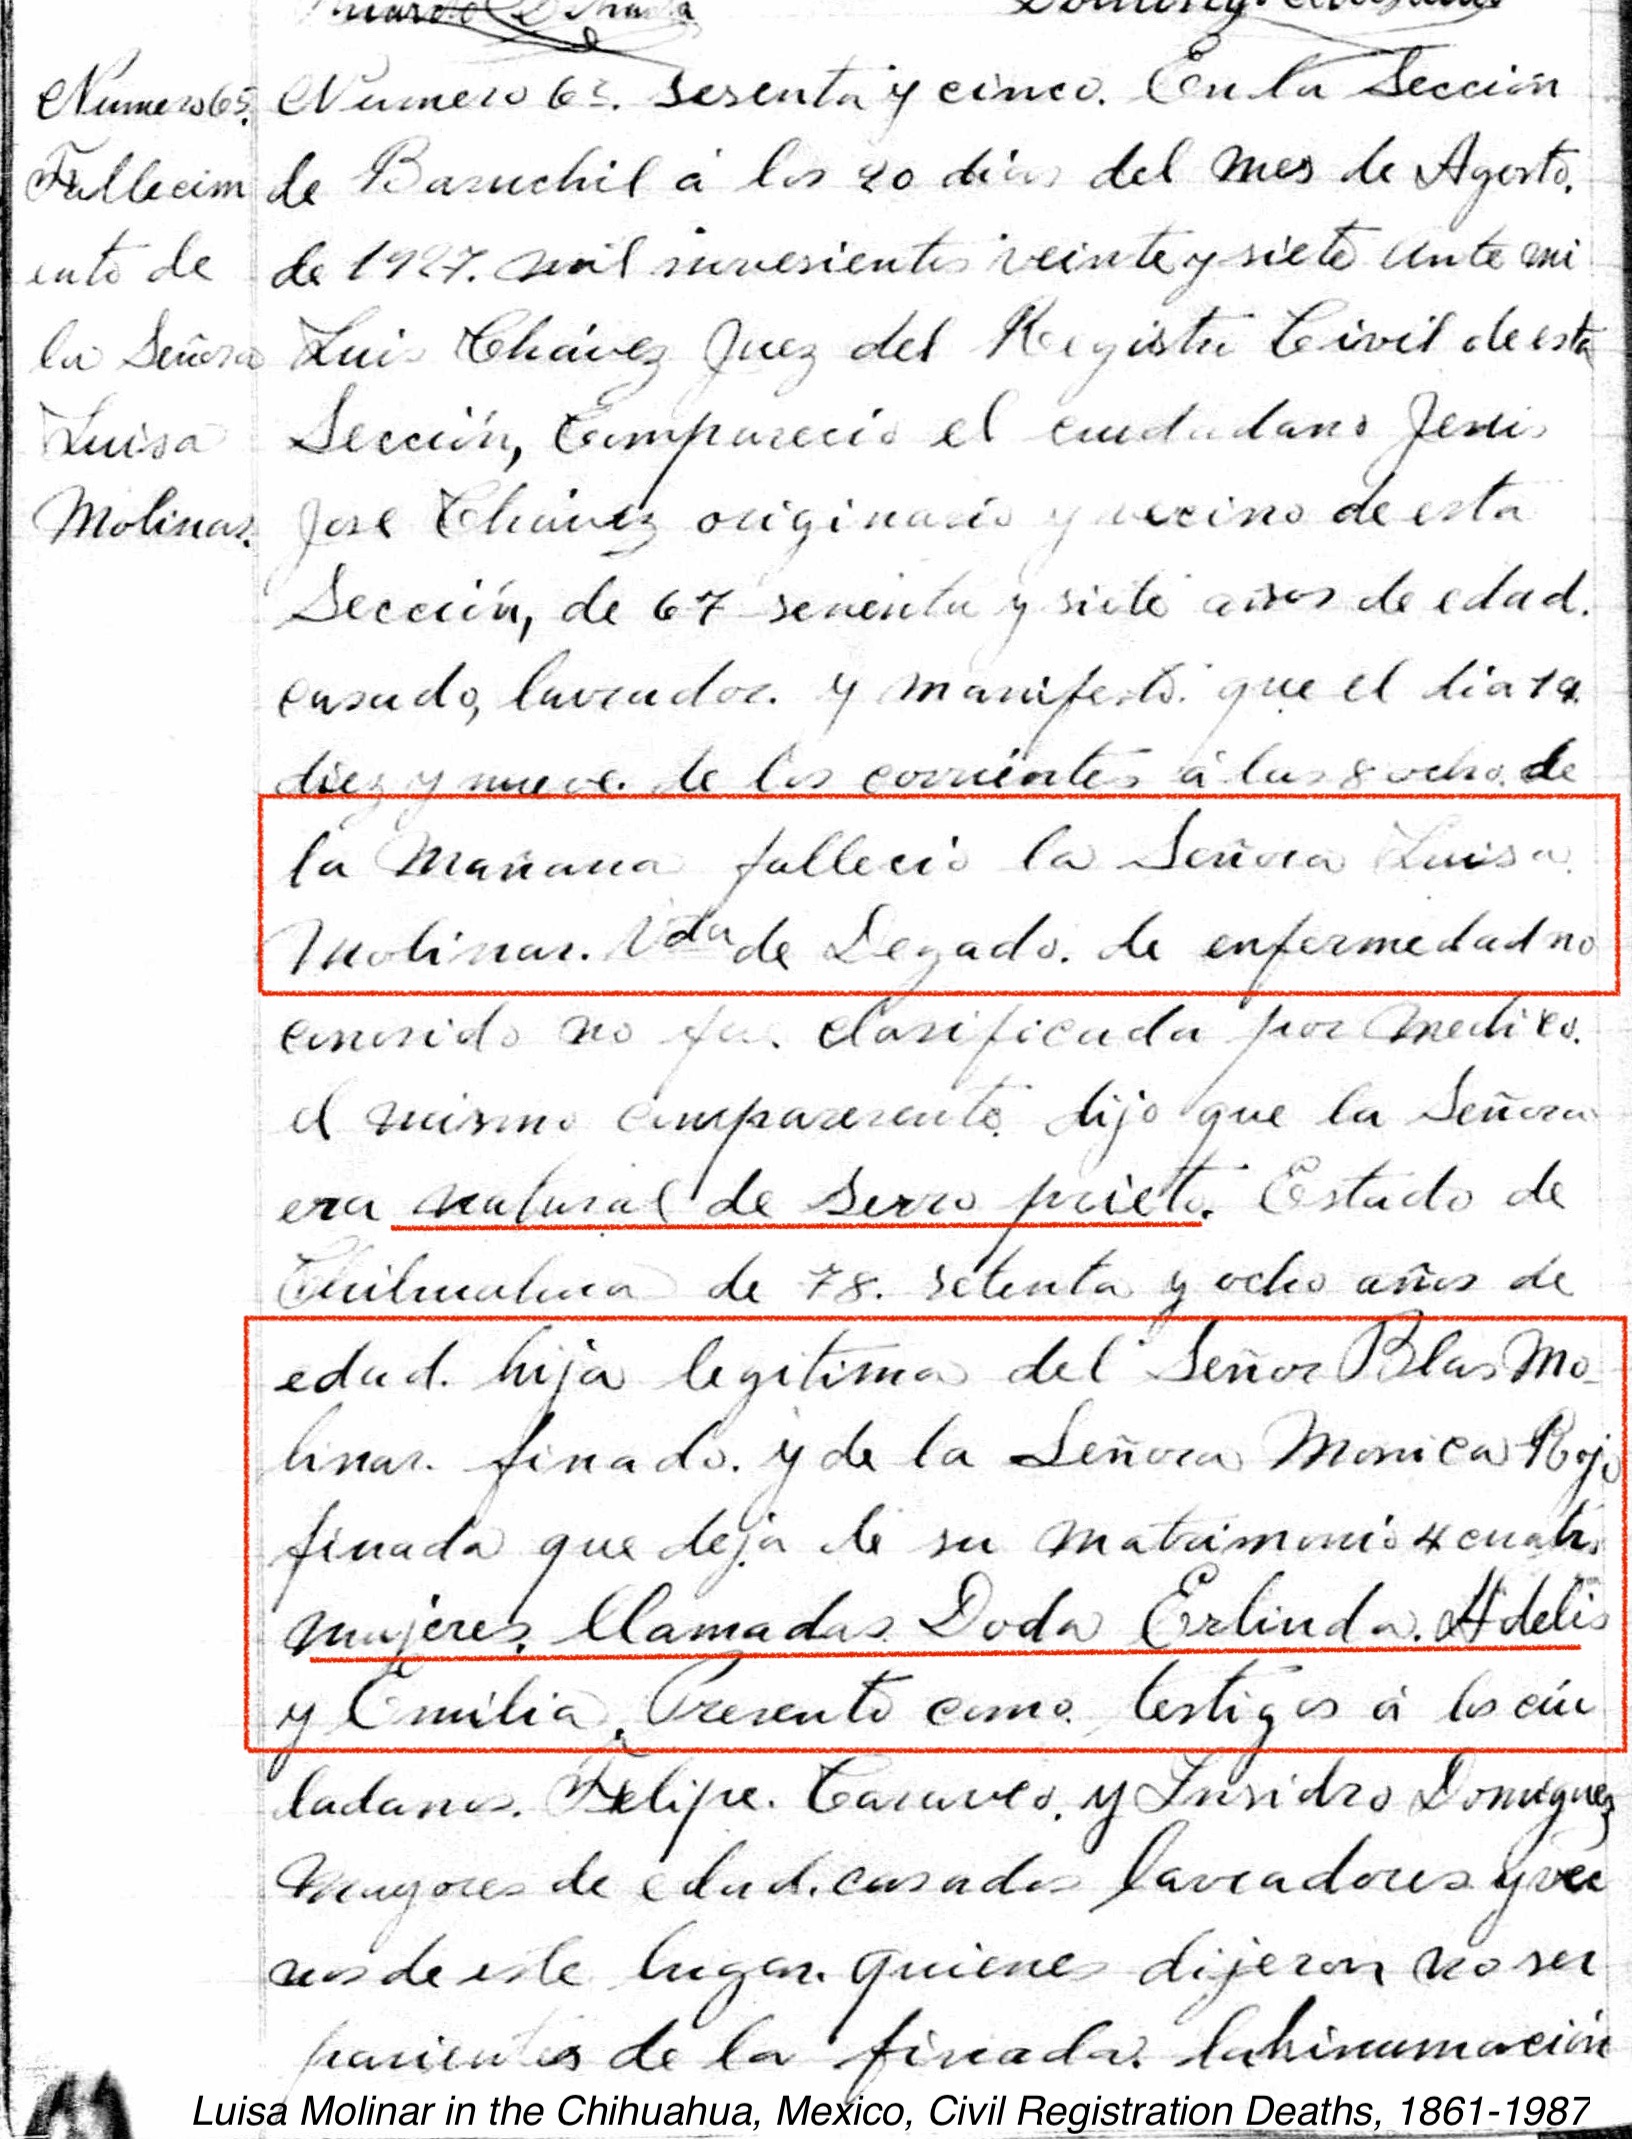 Numero 65.
Fallecim
ento de
la Señora
Luisa
Molinar.
Numero 65. sesenta y cinco. En la Sección
de Basuchil á los 20 dias del mes de Agosto.
de 1927. mil novesientos veinte y siete ante mi
Luis Chávez Juez del Registro Civil de esta
Sección, Comparecio el ciudadano Jesus
Jose Chávez originario y vecino de esta
Sección, de 67 sesenta y siete años de edad.
casado, lavrador. y manifestó. que el dia 19.
diez y nueve. de los corrientes á las 8 ocho. de
la Mañana fallecio la Señora Luisa
Molinar. Vda de Degado. de enfermedad no
conosido no fue. clasificada por medico.
el mismo comparesente. dijo que la Señora
era natural de Serro prieto. Estado de
Chihuahua de 78. setenta y ocho años de
edad. hija legitima del Señor Blas Mo-
linar. finado. y de la Señora Monica Rojo
finada que deja de su matrimonio 4 cuatro
mujeres. llamadas. Doda Erlinda. Adelis
y Emilia. Presentó como. testigos á los ciu
dadanos. Felipe. Caraveo. y Insidro Domignez
Mayores de edad. casados lavradores y veci
nos de este lugar. quienes dijeron no ser
parientes de la finada. la hinumación
Luisa Molinar in the Chihuahua, Mexico, Civil Registration Deaths, 1861-1987